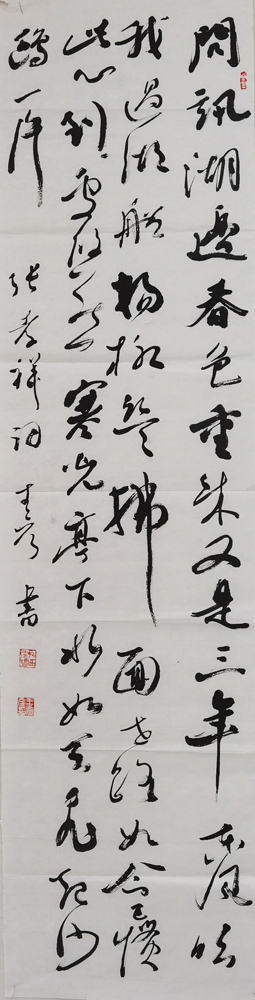 問訊湖邊春色重来又是三年东风吹
我過湖船楊柳丝丝拂面世路如今已慣
此心到處悠然寒光亭下水如天飛起沙
鷗一片 张孝祥词 書